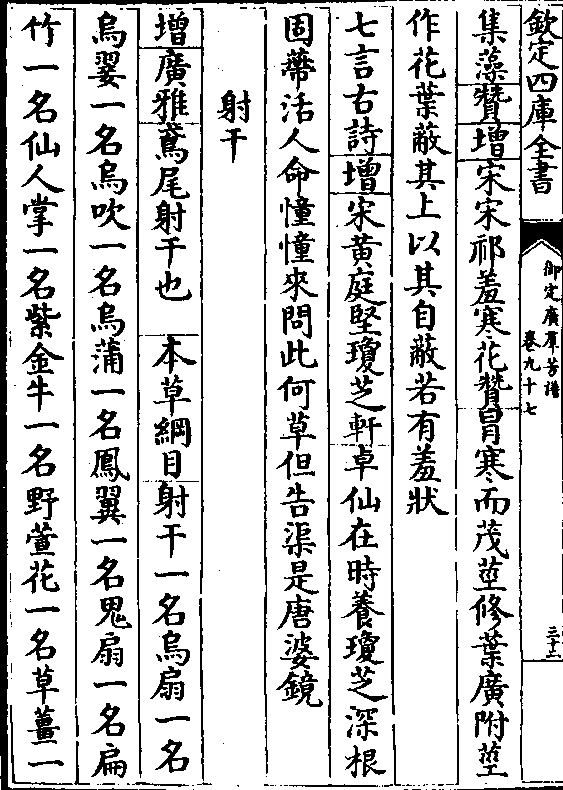 欽定四庫全書
御定廣羣芳譜
卷九十七
三十二
集藻贊增宋宋祁羞寒花贊冒寒而茂莖修葉廣附莖
作花葉蔽其上以其自蔽若有羞狀
七言古詩增宋黃庭堅瓊芝軒卓仙在時養瓊芝深根
固蔕活人命憧憧來問此何草但告渠是唐婆鏡
射干
增廣雅鳶尾射干也 本草綱目射干一名烏扇一名
烏翣一名烏吹一名烏蒲一名鳳翼一名鬼扇一名扁
竹一名仙人掌一名紫金牛一名野萱花一名草薑一